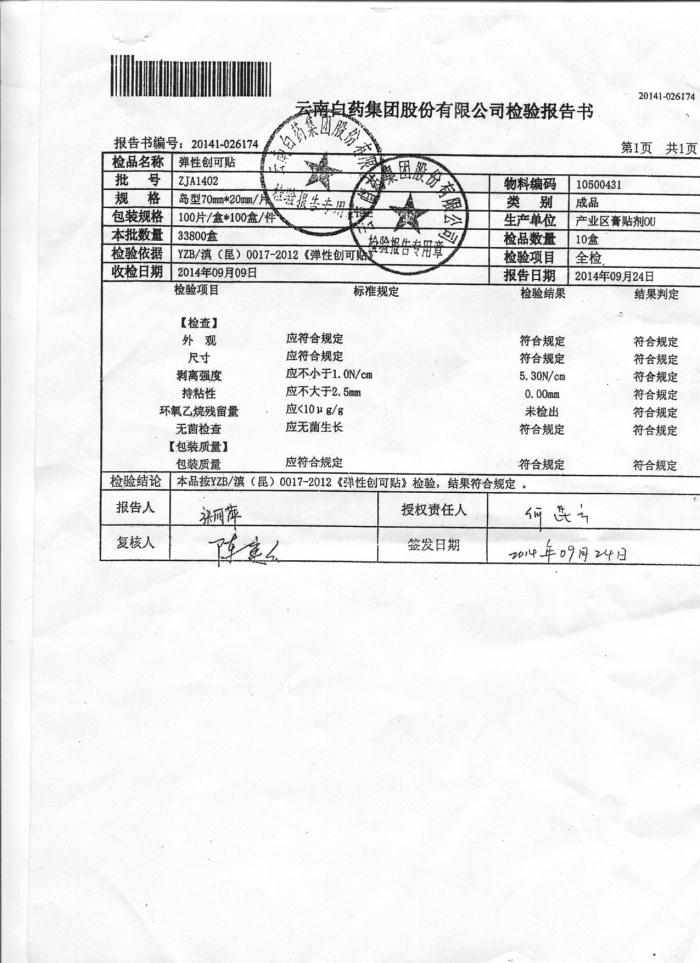 20141-026174
云南白药集团股份有限公司检验报告书
报告书编号：20141-026174 第1页 共1页
检品名称 弹性创可贴
批 号 ZJA1402 物料编码 10500431
规 格 岛型70mm*20mm/片 类 别 成品
包装规格 100片/盒*100盒/件 生产单位 产业区膏贴剂OU
本批数量 33800盒 检品数量 10盒
检验依据 YZB/滇（昆）0017-2012《弹性创可贴》 检验项目 全检
收检日期 2014年09月09日 报告日期 2014年09月24日
云南白药集团股份有限公司
检验报告专用章
云南白药集团股份有限公司
检验报告专用章
检验项目 标准规定 检验结果 结果判定
【检查】
外 观 应符合规定 符合规定 符合规定
尺寸 应符合规定 符合规定 符合规定
剥离强度 应不小于1.0N/cm 5.30N/cm 符合规定
持粘性 应不大于2.5mm 0.00mm 符合规定
环氧乙烷残留量 应<10μg/g 未检出 符合规定
无菌检查 应无菌生长 符合规定 符合规定
【包装质量】
包装质量 应符合规定 符合规定 符合规定
检验结论 本品按YZB/滇（昆）0017-2012《弹性创可贴》检验，结果符合规定．
报告人 张丽萍 授权责任人
复核人 签发日期 2014年09月24日